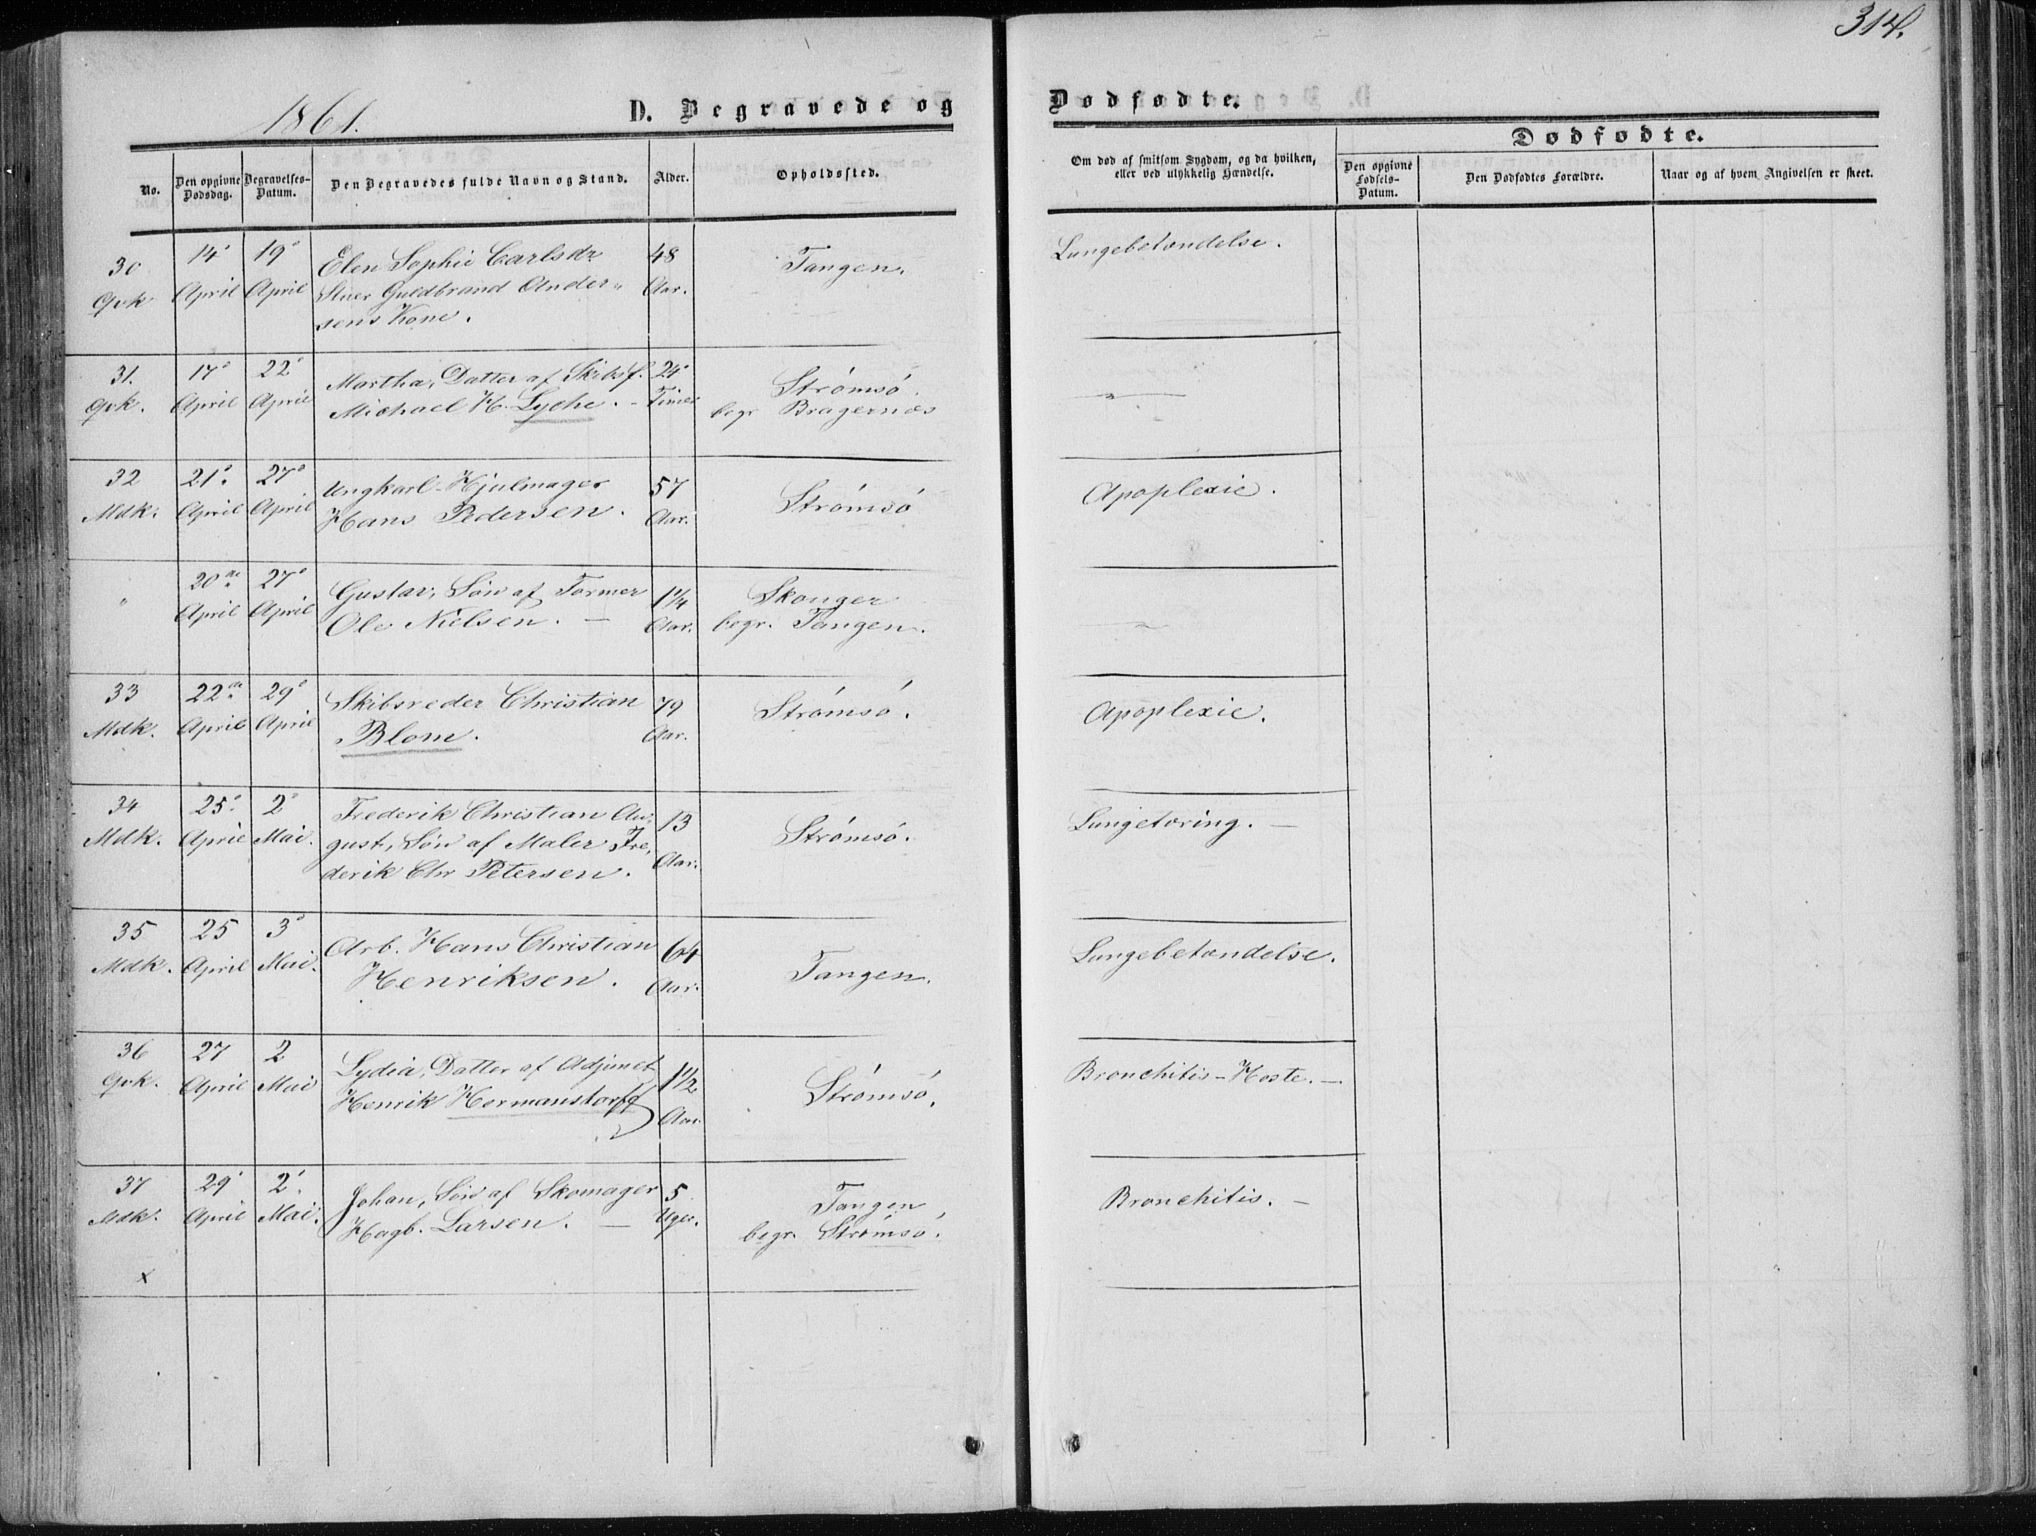 314.
1861.
D. Begravede og
Dødfødte.
No.
Den opgivne Dødsdag.
Begravelses-Datum.
Den Begravedes fulde Navn og Stand.
Alder.
Opholdssted.
Om død af smitsom Sygdom, og da hvilken,
eller ved ulykkelig Hændelse.
Dødfødte.
Den opgivne Fødsels-Datum.
Den Dødfødtes Forældre.
Naar og af hvem Angivelsen er skeet.
30 14' 19' Elen Sophie Carlsdr 48 Tangen. Lungebetændelse.
Qvk April April Guldbrand Ander- Aar.
sens Kone.
31. 17' 22' Martha, Datter af Skibsf. 24' Strømsø.
Qvk. April April Michael H. Lyche. - Timer begr Bragernæs
32 21' 27' Ungkarl Hjulmager 57 Strømsø Apoplexie.
Mdk. April April Hans Pedersen. Aar.
" 20de 27' Gustav, Søn af Former 1¼ Skonger
April April Ole Nielsen. - Aar. begr. Tangen.
33 22de 29' Skibsreder Christian 79 Strømsø. Apoplexie.
Mdk. April April Blom. Aar.
34 25' 2' Frederik Christian Au- 13 Strømsø. Lungetæring. -
Mdk. April Mai. gust, Søn af Maler Fre-
derik Chr Petersen. Aar.
35 25 3' Arb. Hans Christian 64 Tangen. Lungebetændelse.
Mdk. April Mai. Henriksen. Aar.
36 27 2 Lydia, Datter af Adjunct 1½ Strømsø. Bronchitis - Hoste. -
Qvk. April Mai Henrik Hermanstorff Aar.
37 29' 2' Johan, Søn af Skomager 5 Tangen Bronchitis. -
Mdk. April Mai. Hagb. Larsen. - Uger. begr. Strømsø.
x